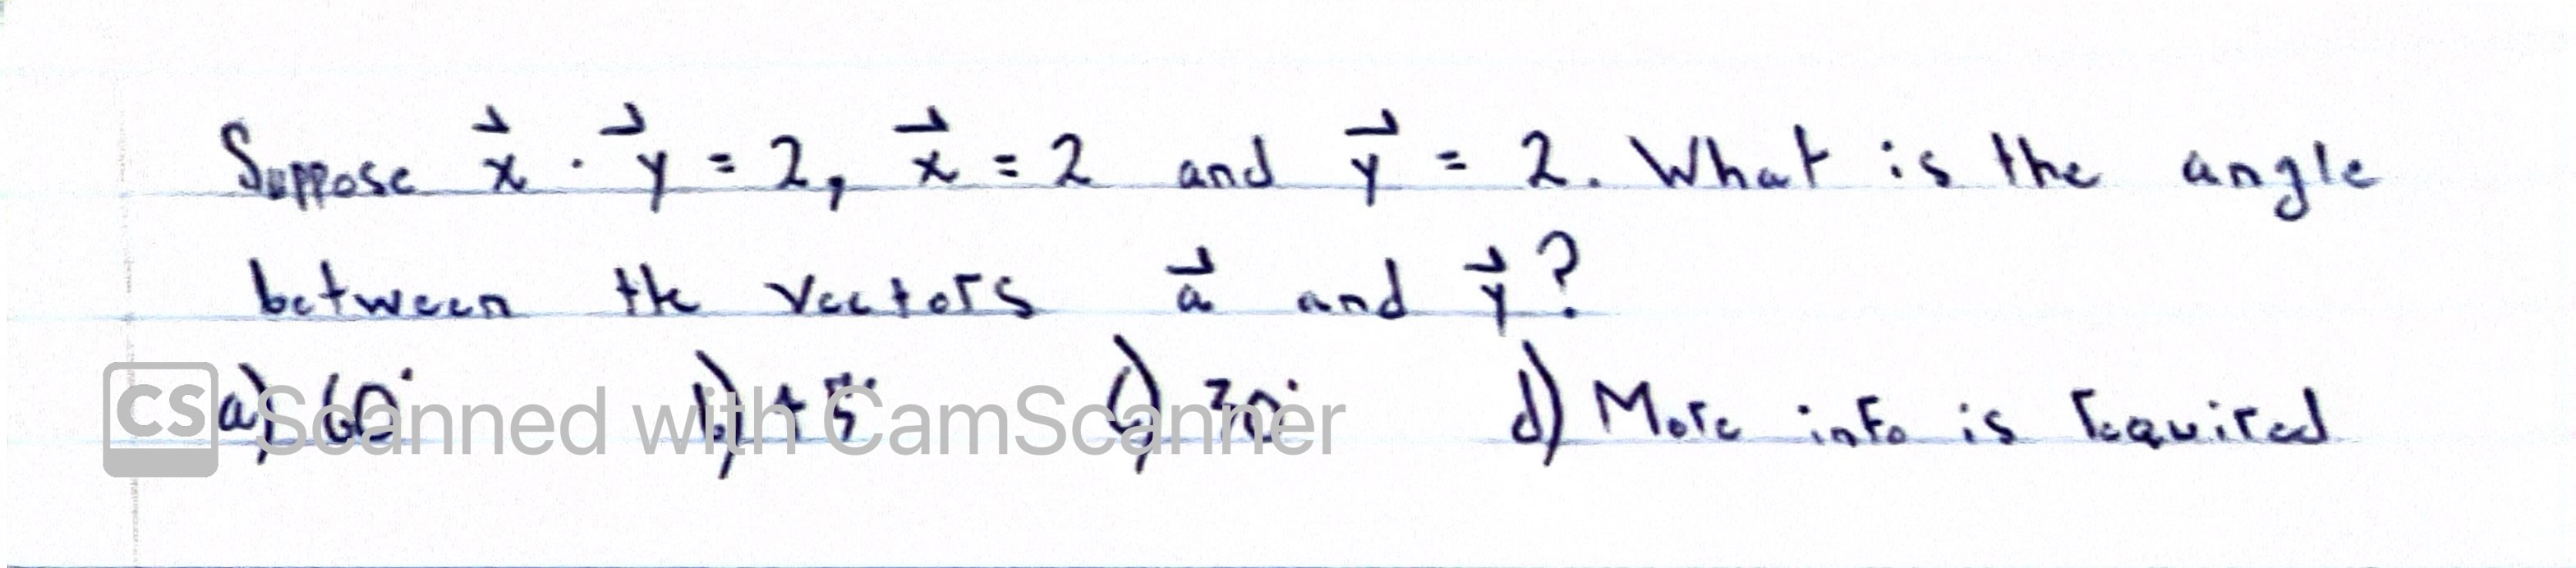 Suppose x⃗ · y⃗ = 2, x⃗ = 2 and y⃗ = 2. What is the angle
between the vectors a⃗ and y⃗?
a) 60° b) 45° c) 30° d) More info is required
CS Scanned with CamScanner